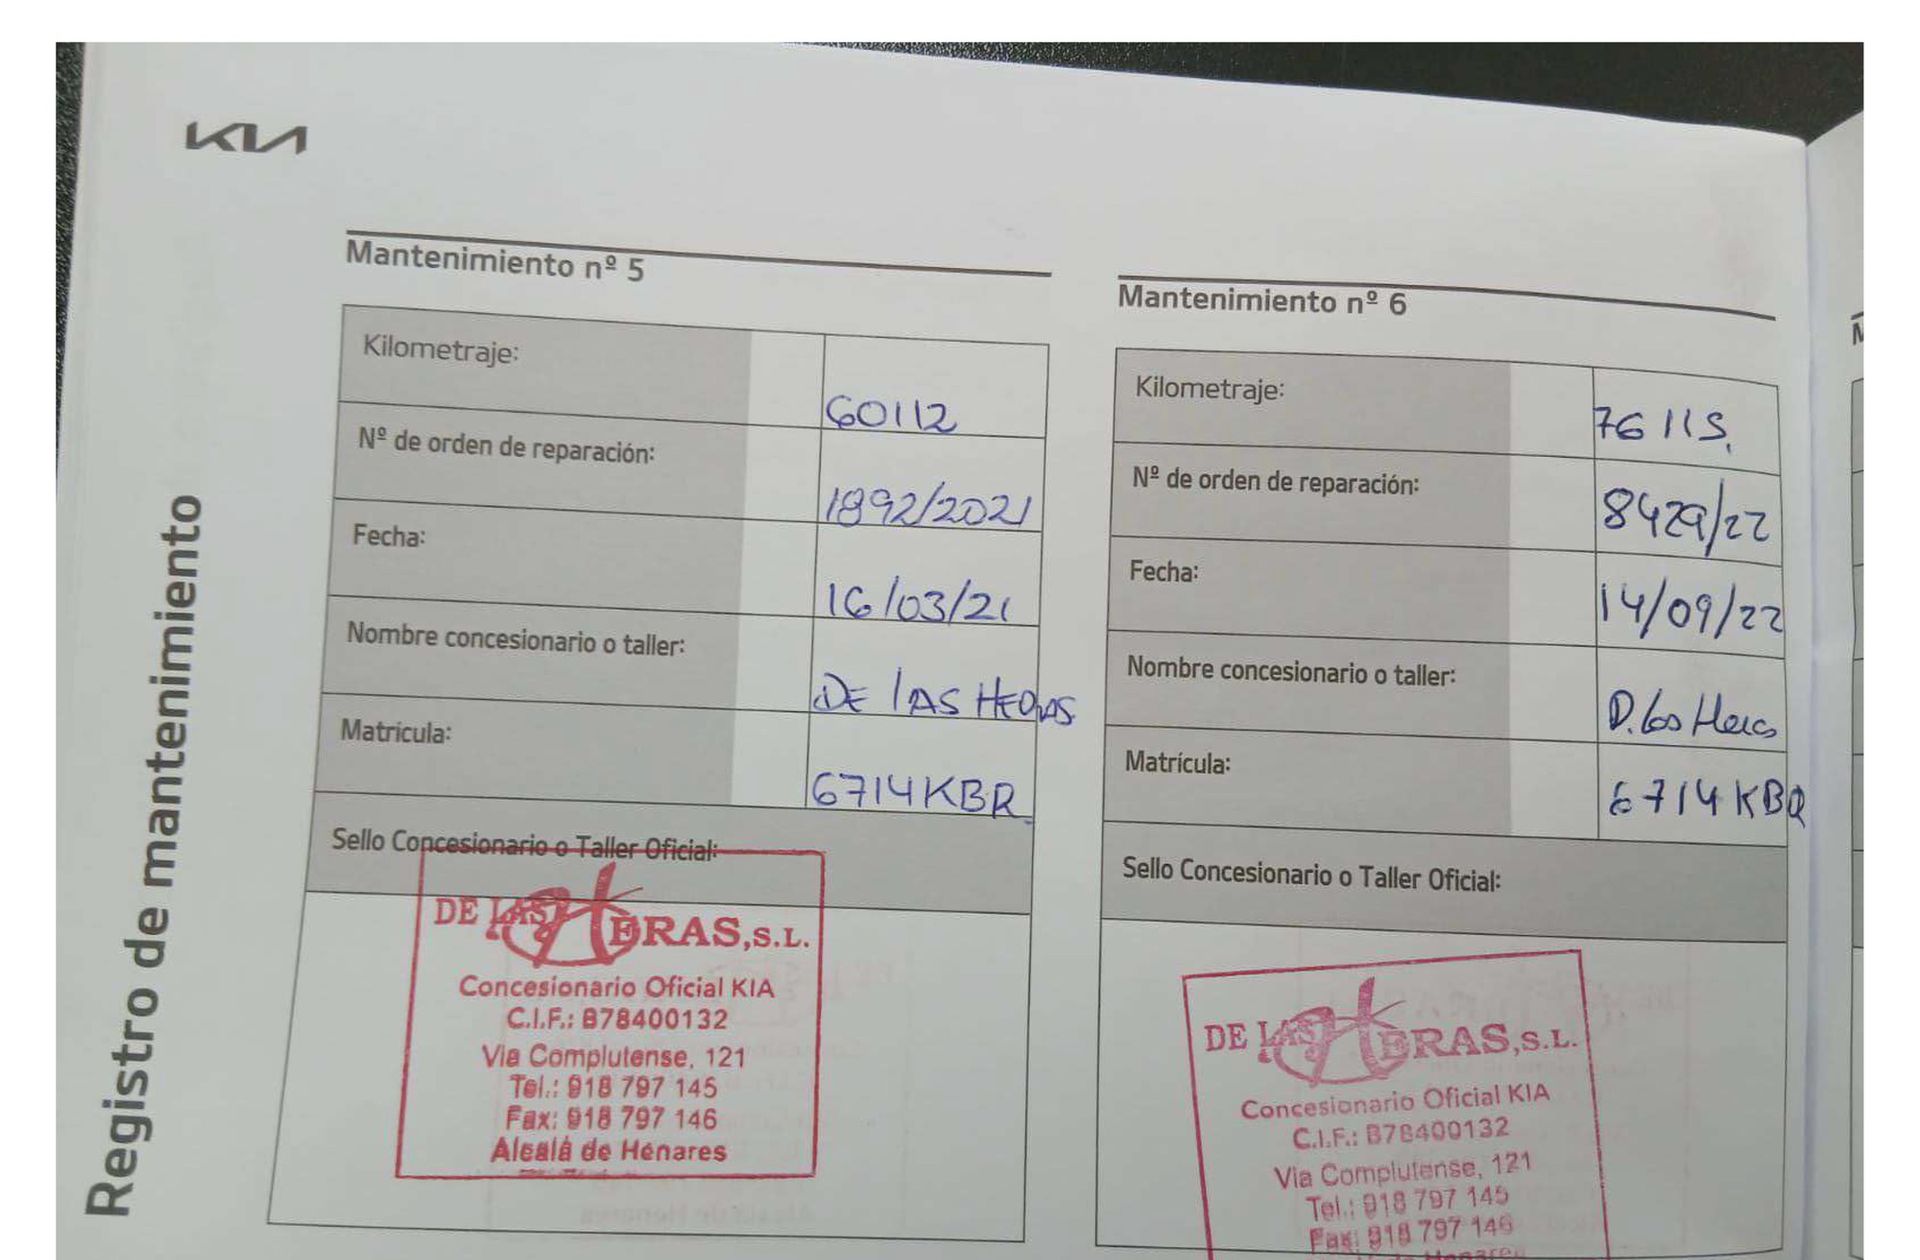 KIA
Registro de mantenimiento
Mantenimiento nº 5
Kilometraje: 60112
Nº de orden de reparación: 1892/2021
Fecha: 16/03/21
Nombre concesionario o taller: DE lAS HERAS
Matricula: 6714KBR
Sello Concesionario o Taller Oficial:
DE LAS HERAS, S.L.
Concesionario Oficial KIA
C.I.F.: B78400132
Via Complutense, 121
Tel.: 918 797 145
Fax: 918 797 146
Alcalá de Henares
Mantenimiento nº 6
Kilometraje: 76115.
Nº de orden de reparación: 8429/22
Fecha: 14/09/22
Nombre concesionario o taller: D. las Heras
Matrícula: 6714KBR
Sello Concesionario o Taller Oficial:
DE LAS HERAS, S.L.
Concesionario Oficial KIA
C.I.F.: B78400132
Via Complutense, 121
Tel.: 918 797 145
Fax: 918 797 146
de Henares